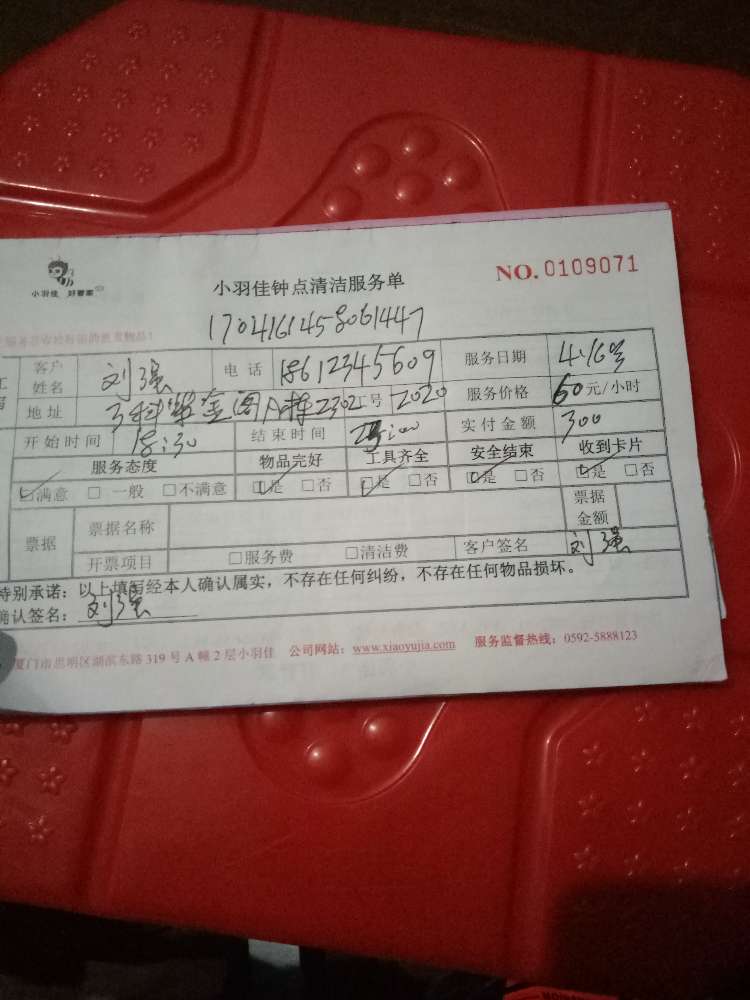 小羽佳 好管家
小羽佳钟点清洁服务单
NO. 0109071
1704161458061447
客户姓名 刘强 电话 18612345609 服务日期 4.16号
地址 A栋2302 工号 2020 服务价格 60元/小时
开始时间 18:30 结束时间 实付金额 300
服务态度 物品完好 工具齐全 安全结束 收到卡片
☑满意 □一般 □不满意 ☑是 □否 ☑是 □否 ☑是 □否 ☑是 □否
票据 票据名称 票据金额
开票项目 □服务费 □清洁费 客户签名 刘强
特别承诺：以上填写经本人确认属实，不存在任何纠纷，不存在任何物品损坏。
确认签名：刘强
厦门市思明区湖滨东路319号A幢2层小羽佳 公司网站：www.xiaoyujia.com 服务监督热线：0592-5888123